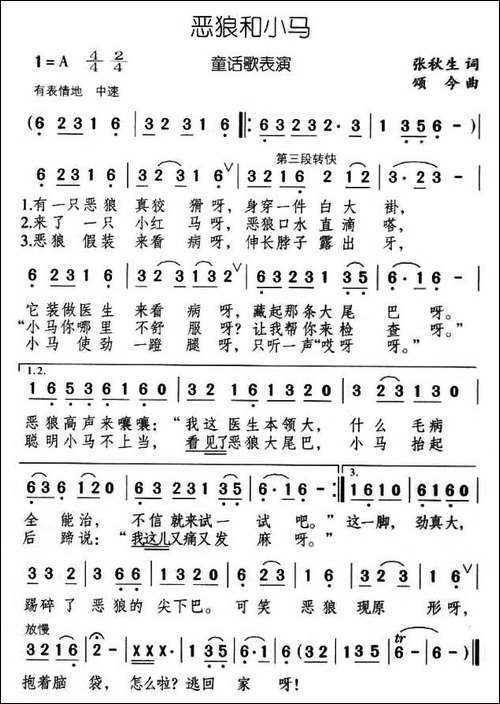 恶狼和小马
1=A 4/4 2/4
童话歌表演
张秋生 词
颂今 曲
有表情地 中速
(6 2316 | 32 316 ‖: 63232·3 | 1 356 -) |
第三段转快
6 2316 | 32 316 ∨ | 3216 2 12 | 3·23 - |
1.有一只恶狼 真狡 猾呀,身穿一件 白大 褂,
2.来了 一只 小红 马呀,恶狼口水 直滴 嗒,
3.恶狼 假装 来看 病呀,伸长脖子 露出 牙,
6 2316 | 32 3132 ∨ | 62231 35 | 6·16 - |
它装做医生 来看 病呀,藏起那条大尾 巴 呀。
“小马你哪里 不舒 服呀?让我帮你来检 查 呀。”
小马 使劲 一蹬 腿呀,只听一声“哎呀 呀。”
1.2.
16536160 | 32 161320 | 32 1613 |
恶狼高声来嚷嚷:“我这 医生本领大, 什么 毛病
聪明小马不上当, 看见了恶狼大尾巴, 小马 抬起
636 1220 | 623132 35 | 6·16 - :‖ 3. 1610 6160 |
全 能治, 不信就来试一 试 吧。” 这一脚,劲真大,
后 蹄说:“我这儿又痛又发 麻 呀。”
332 | 3 66 | 1320 | 6 32 | 6 123 | 2·16 ∨ |
踢碎了 恶狼的 尖下巴。可笑 恶狼 现原 形呀,
放慢
3216 | 2 - | XXX· | 5135 | 6·1 | 3 35 | 6 - | 6 - ‖
抱着脑 袋,怎么啦?逃回 家 呀!